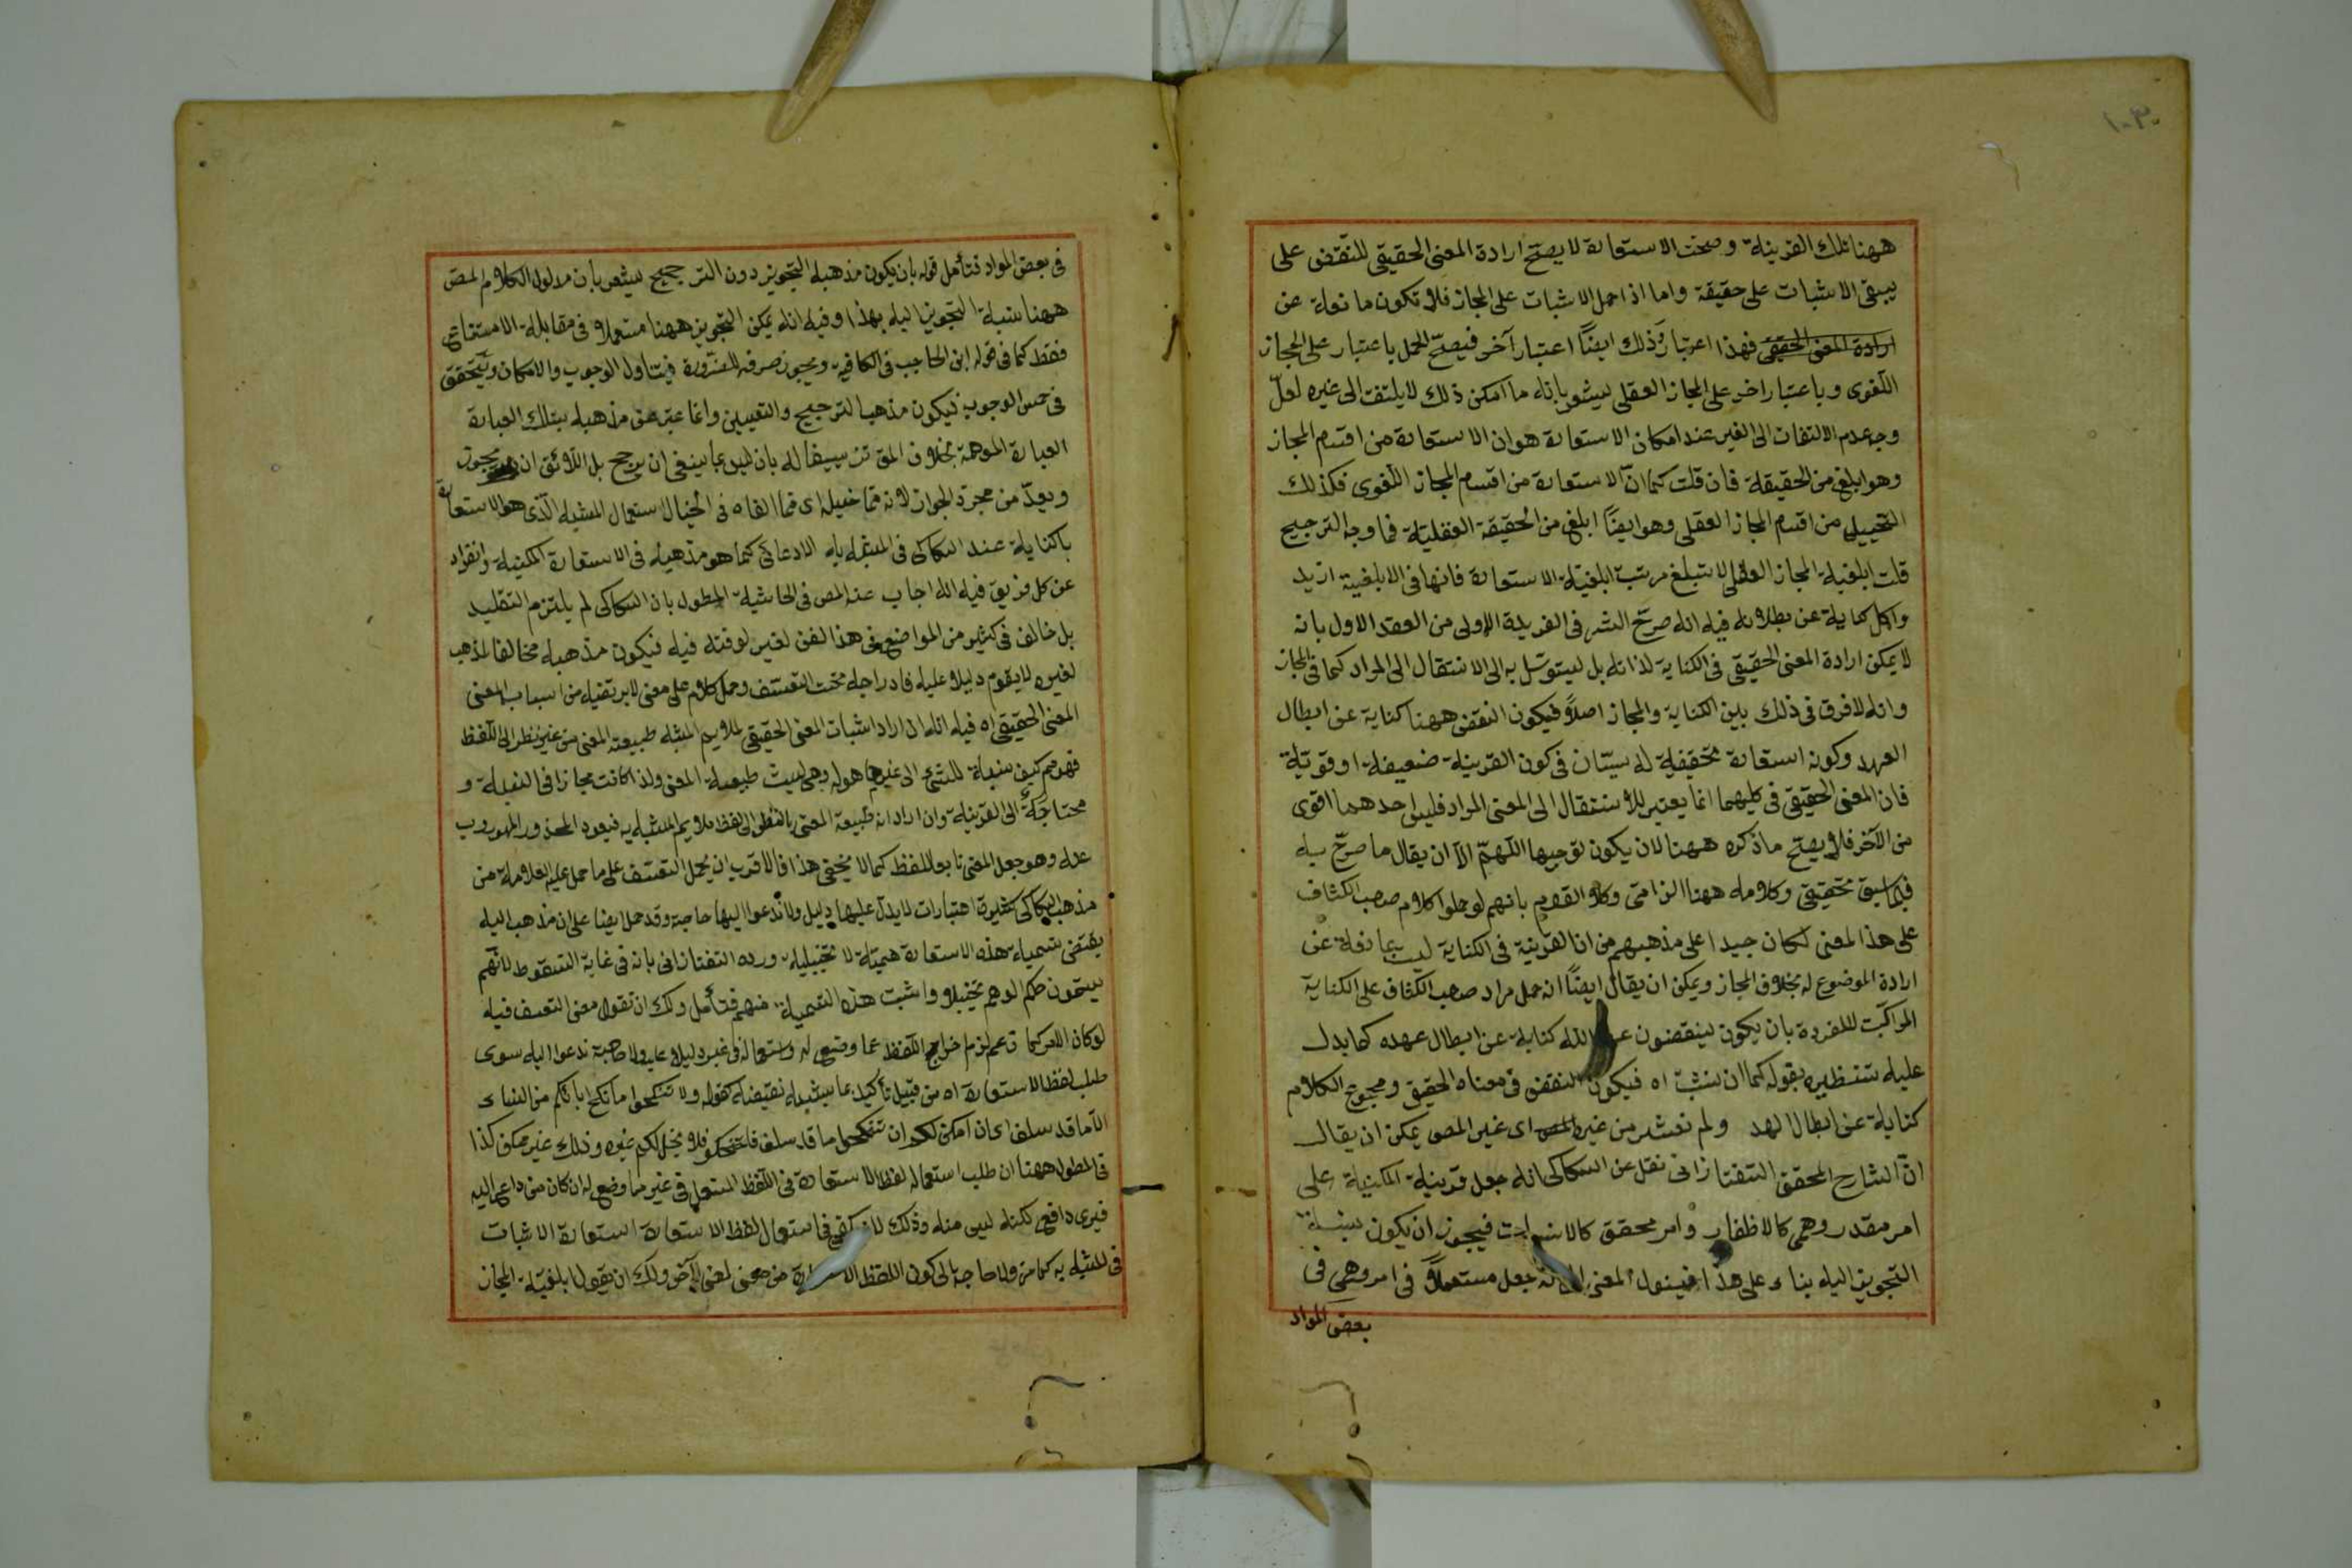 ههنا تلك القرينة وصحت الاستعارة لا يصح ارادة المعنى الحقيقى للنقض على
يبقى الاثبات على حقيقة واما اذا حمل الاثبات على المجاز فلا تكون مانعة عن
ارادة المعنى الحقيقى فهذا اعتبار وذلك ايضاً اعتبار آخر فيصحّ الحمل باعتبار على المجاز
اللّغوى وباعتبار اخر على المجاز العقلى ليشعر بانه ما امكن ذلك لا يلتفت الى غيره لعلّ
وجه عدم الالتفات الى الغير عند امكان الاستعارة هو ان الاستعارة من اقسام المجاز
وهو ابلغ من الحقيقة فان قلت كما انّ الاستعارة من اقسام المجاز اللّغوى فكذلك
التخييل من اقسام المجاز العقلى وهو ايضاً ابلغ من الحقيقة العقليّة فما وجه الترجيح
قلت ابلغية المجاز العقلى لا تبلغ مرتبة ابلغيّة الاستعارة فانها فى الابلغية ازيد
واكل كناية عن بطلانه فيه انه صرّح الشر فى الفريدة الاولى من العقد الاول بانه
لا يمكن ارادة المعنى الحقيقى فى الكناية لذاته بل ليتوسّل به الى الانتقال الى المراد كما فى المجاز
وانه لا فرق فى ذلك بين الكناية والمجاز اصلاً فيكون النقض ههنا كناية عن ابطال
العهد وكونه استعارة تحقيقية له سيّان فى كون القرينة ضعيفة او قوتية
فان المعنى الحقيقى فى كليهما انما يعتبر للانتقال الى المعنى المراد فليس احدهما اقوى
من الآخر فلا يصحّ ما ذكره ههنا لان يكون توجيها اللّهمّ الاّ ان يقال ما صرّح به
فيما سبق تحقيقى وكلامه ههنا الزامى وكلام القوم بانهم لو حملوا كلام صحب الكشاف
على هذا المعنى لكان جيدا على مذهبهم من ان القرينة فى الكناية ليست بمانعة عن
ارادة الموضوع له بخلاف المجاز ويمكن ان يقال ايضاً انه حمل مراد صحب الكشاف على الكناية
المراكبّت للمفردة بان يكون ينقضون عهد الله كناية عن ابطال عهده كما يدل
عليه تنظيره بقوله كما ان ينشبث اه فيكون النقض فى معناه الحقيقى ومجموع الكلام
كناية عن ابطال العهد ولم نعثر من غيره المص اى غير المص يمكن ان يقال
انّ الشارح المحقق التفتازانى نقل عن السكاكى انه جعل قرينة المكنية على
امر مقدر وهمى كالاظفار وامر محقق كالانبات فيجوز ان يكون نسبة
التجويز اليه بناء على هذا فيقول المعنى انه جعل مستعملاً فى امر وهمى فى
بعض المواد
فى بعض المواد فتأمل قوله بان يكون مذهبه التجويز دون الترجيح ليشعر بان مدلول الكلام المص
ههنا نسبة التجويز اليه بهذا وفيه انه يمكن التجويز ههنا مستعملا فى مقابلة الامتناع
فقط كما فى قوله ابن الحاجب فى الكافية ويجوز صرفه للضرورة فيتناول الوجوب والامكان ويتحقق
فى ضمن الوجوب فيكون مذهبه الترجيح والتعيين وانما عبّر عن مذهبه بتلك العبارة
العبارة الموهمة بخلاف المق تزييفا له بان ليس مما ينبغى ان يرجح بل اللّائق ان يجوز
ويعدّ من مجرّد الجواز لانه مما خيله اى مما القاه فى الخيال استعمال المشبه الّذى هو الاستعارة
بالكناية عند السكاكى فى المشبه به الادعائى كما هو مذهبه فى الاستعارة المكنية وانفراد
عن كل فريق فيه انه اجاب عنه المص فى الحاشية المطول بان السكاكى لم يلتزم التقليد
بل خالف فى كثير من المواضع فى هذا الفن لغير لوقته فيه فيكون مذهبه مخالفا لمذهب
لغيره لا يقوم دليلا عليه فادراجه تحت التعسّف وحمل كلام على معنى لا يرتضيه من اسباب المعنى
المعنى الحقيقى اه فيه انه ان اراد اثبات المعنى الحقيقى لملايم المشبه طبيعته المعنى من غير نظر الى اللفظ
فهو م كيف نسبة للشئ الى غير ما هو له وهى ليست طبيعة المعنى ولذا كانت مجازا فى النسبة و
محتاجة الى القرينة وان اراد انه طبيعة المعنى بالنظر الى لفظ ملايم المشبه به فيعود المحذور المهروب
عنه وهو جعل المعنى تابعا للفظ كما لا يخفى هذا فالاقرب ان يحمل التعسّف على ما حمل عليه العلامة من
مذهب السكاكى كثيرة اعتبارات لا يدل عليها دليل ولا تدعوا اليها حاجة وقد حمل ايضا على ان مذهب اليه
يقتضى تسمية هذه الاستعارة وهميّة لا تخييلية ورده التفتازانى بانه فى غاية السّقوط لانّهم
يسمّون حكم الوهم تخييلا واثبت هذه التسمية منهم فتأمل ولك ان تقول معنى التعسف فيه
لو كان الامر كما زعم لزم خراج اللفظ عما وضع له واستعماله فى غيره بلا دليل عليه ولا حاجة تدعوا اليه سوى
طلب لفظ الاستعارة اه من قبيل تأكيد بما يشبه نقيضه كقوله ولا تنكحوا ما نكح اباؤكم من النساء
الاّ ما قد سلف اى ان امكن لكم ان تنكحوا ما قد سلف فانكحوا فلا يحل لكم غيره وذلك غير ممكن كذا
فى المطول ههنا ان طلب استعماله لفظ الاستعارة فى اللّفظ المستعمل فى غير ما وضع له ان كان من داعى اليه
فيرى دافع لكنه ليس منه وذلك لانه يكفى فى استعمال لفظ الاستعارة استعارة الاثبات
فى المشبه به كما مر ولا حاجة الى كون اللفظ الاستعارة من معنى لمعنى آخر ولك ان يقول ابلغيّة المجاز